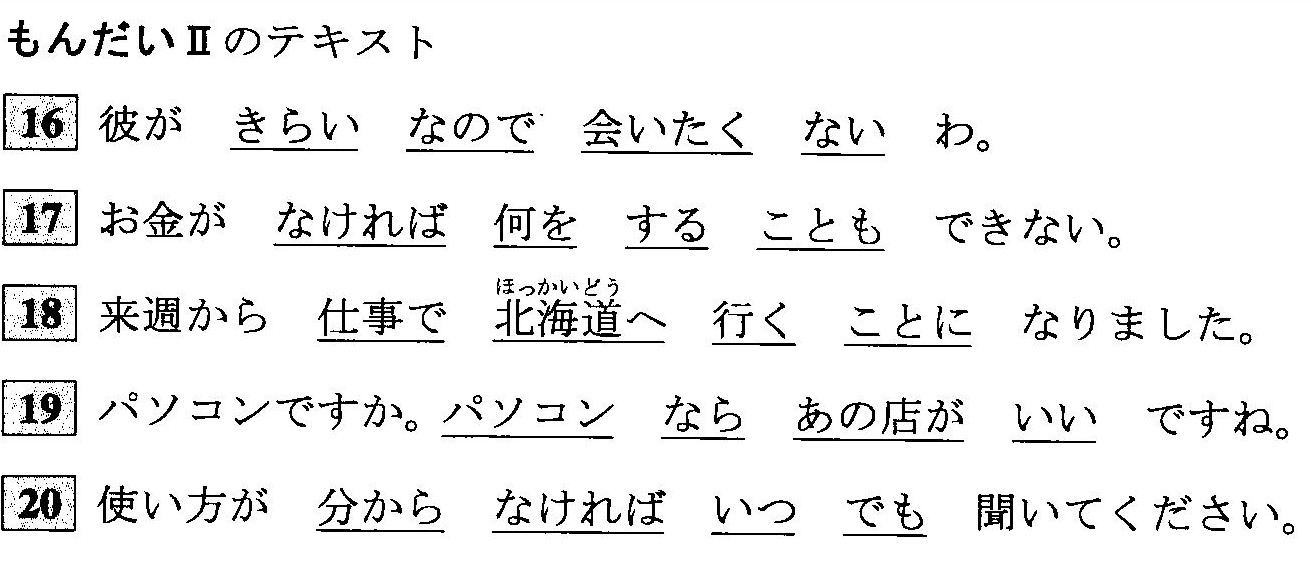 もんだいⅡのテキスト
16 彼が きらい なので 会いたく ない わ。
17 お金が なければ 何を する ことも できない。
ほっかいどう
18 来週から 仕事で 北海道へ 行く ことに なりました。
19 パソコンですか。パソコン なら あの店が いい ですね。
20 使い方が 分から なければ いつ でも 聞いてください。